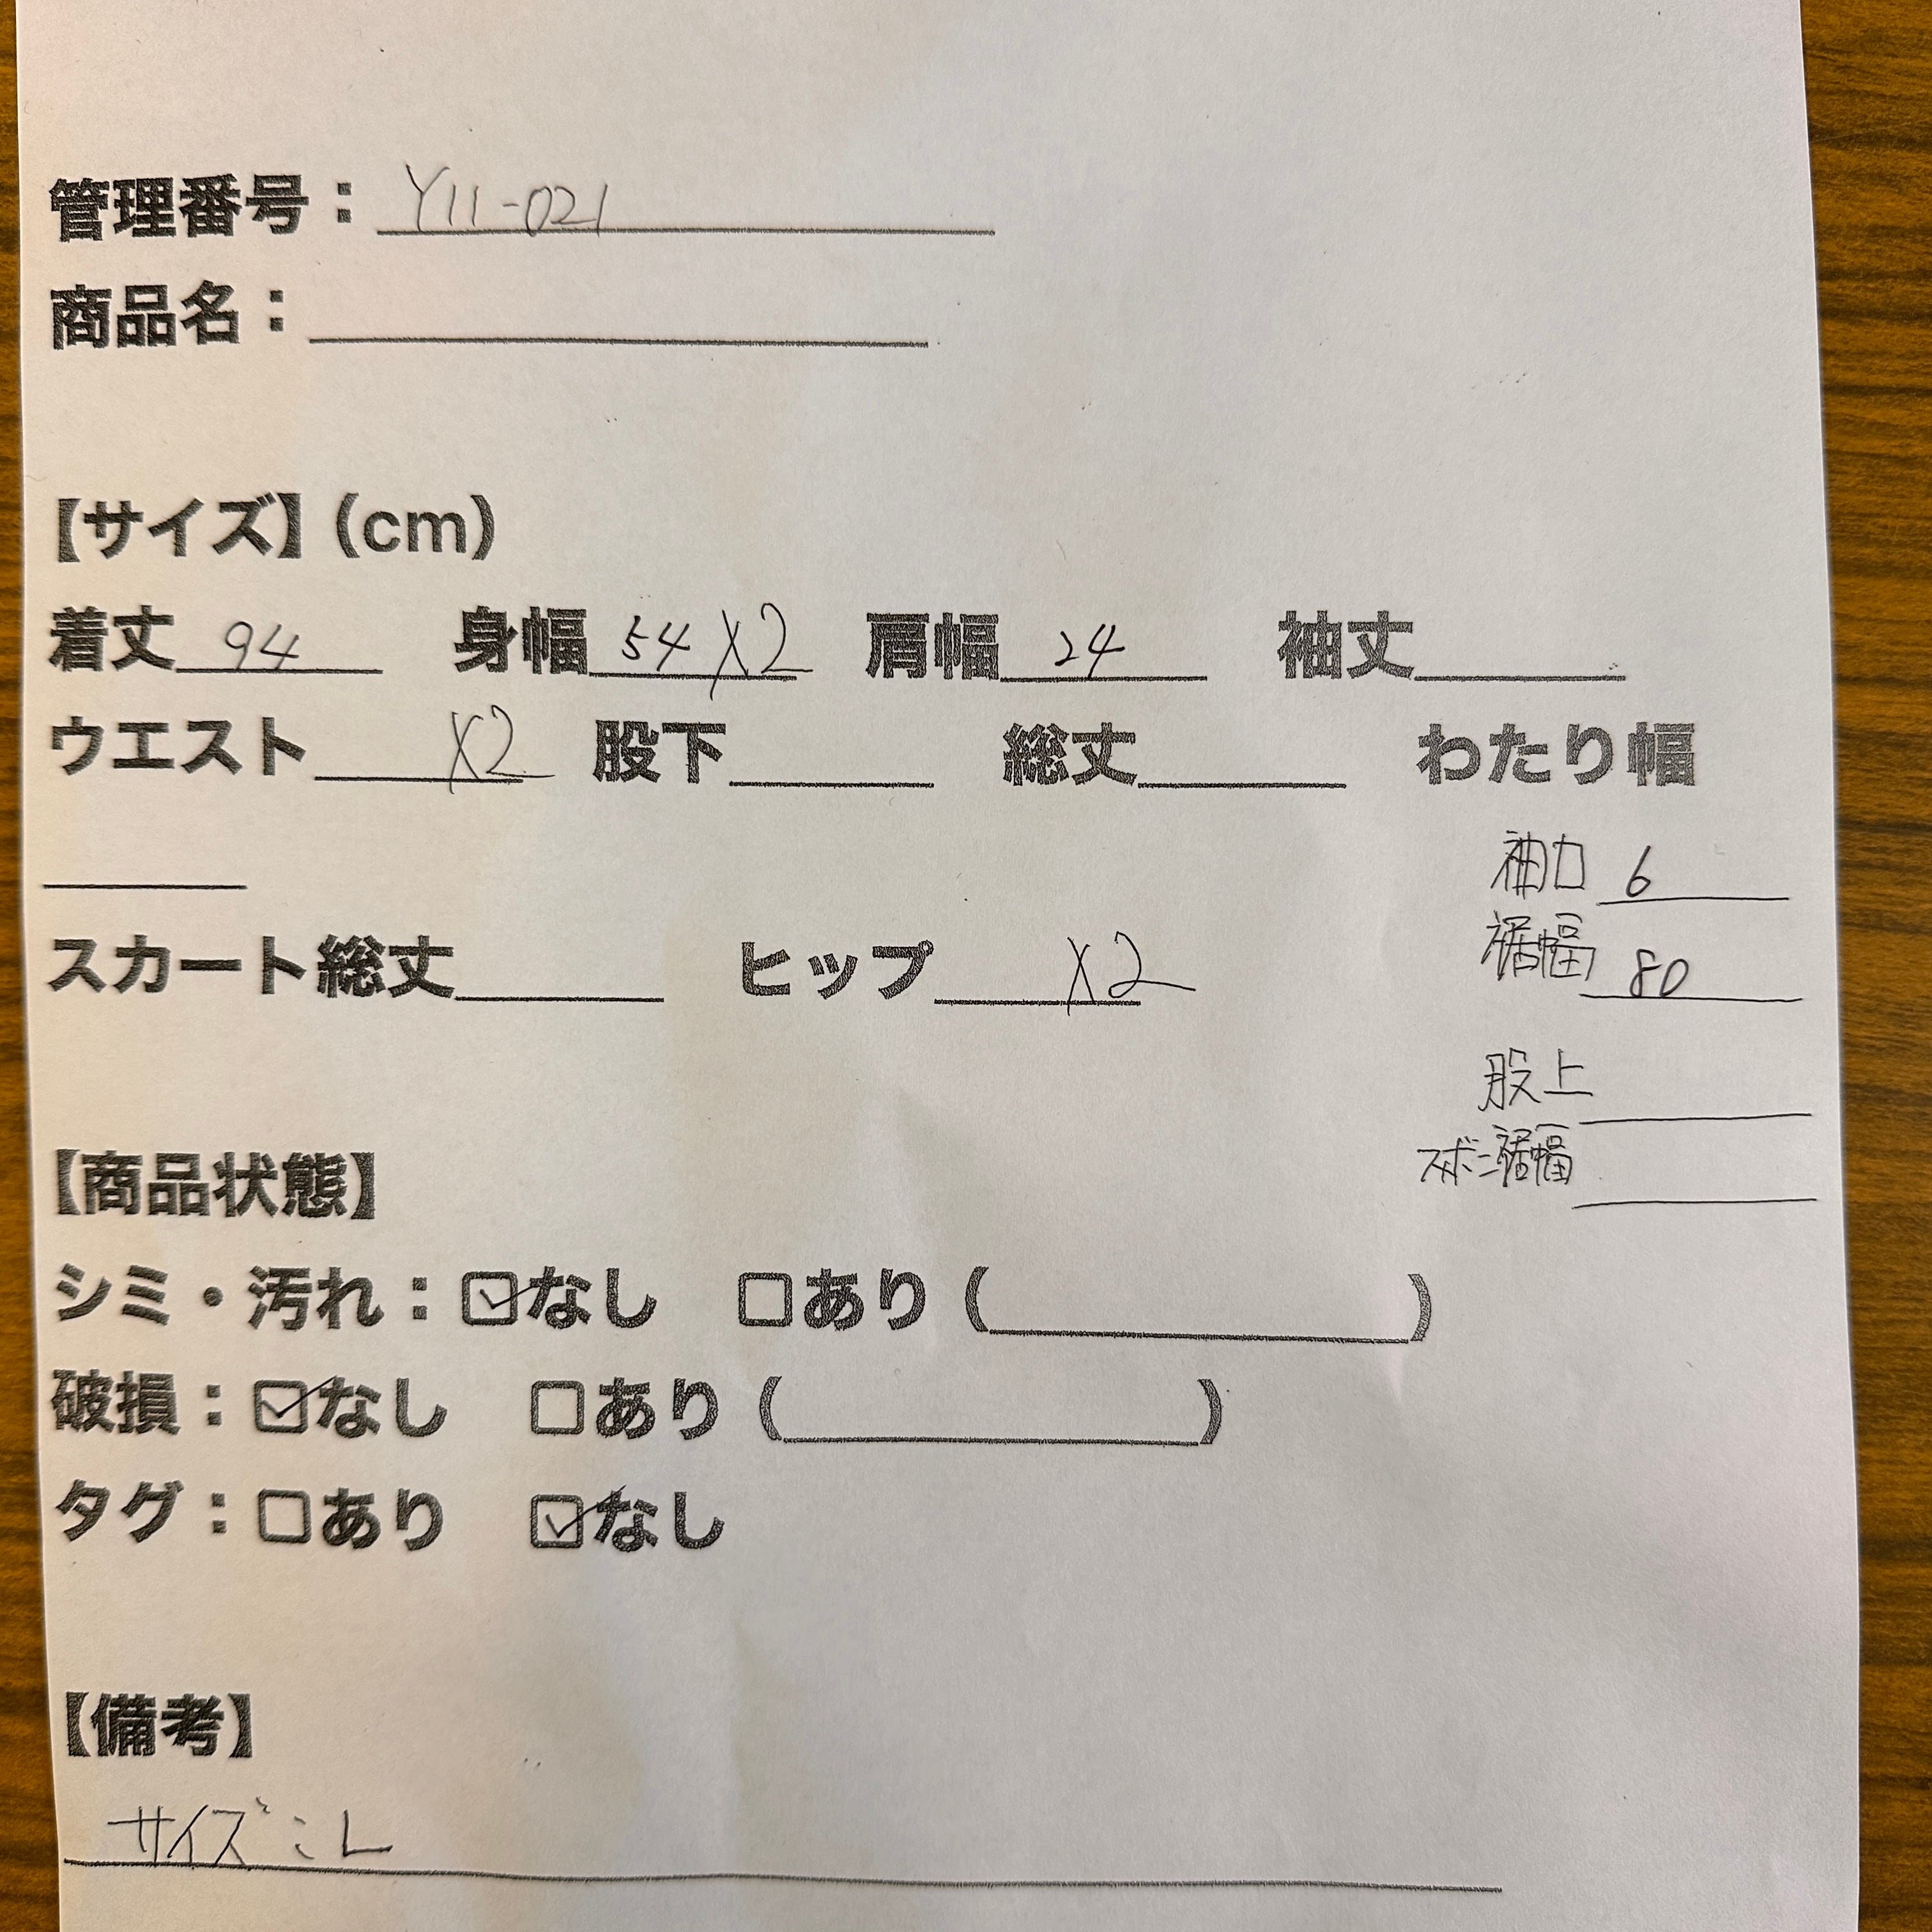 管理番号：Y11-021
商品名：
【サイズ】(cm)
着丈 94 身幅 54 X2 肩幅 24 袖丈
ウエスト X2 股下 総丈 わたり幅
袖口 6
裾幅 80
スカート総丈 ヒップ X2
股上
ズボン裾幅
【商品状態】
シミ・汚れ：☑なし □あり（ ）
破損：☑なし □あり（ ）
タグ：□あり ☑なし
【備考】
サイズ：L